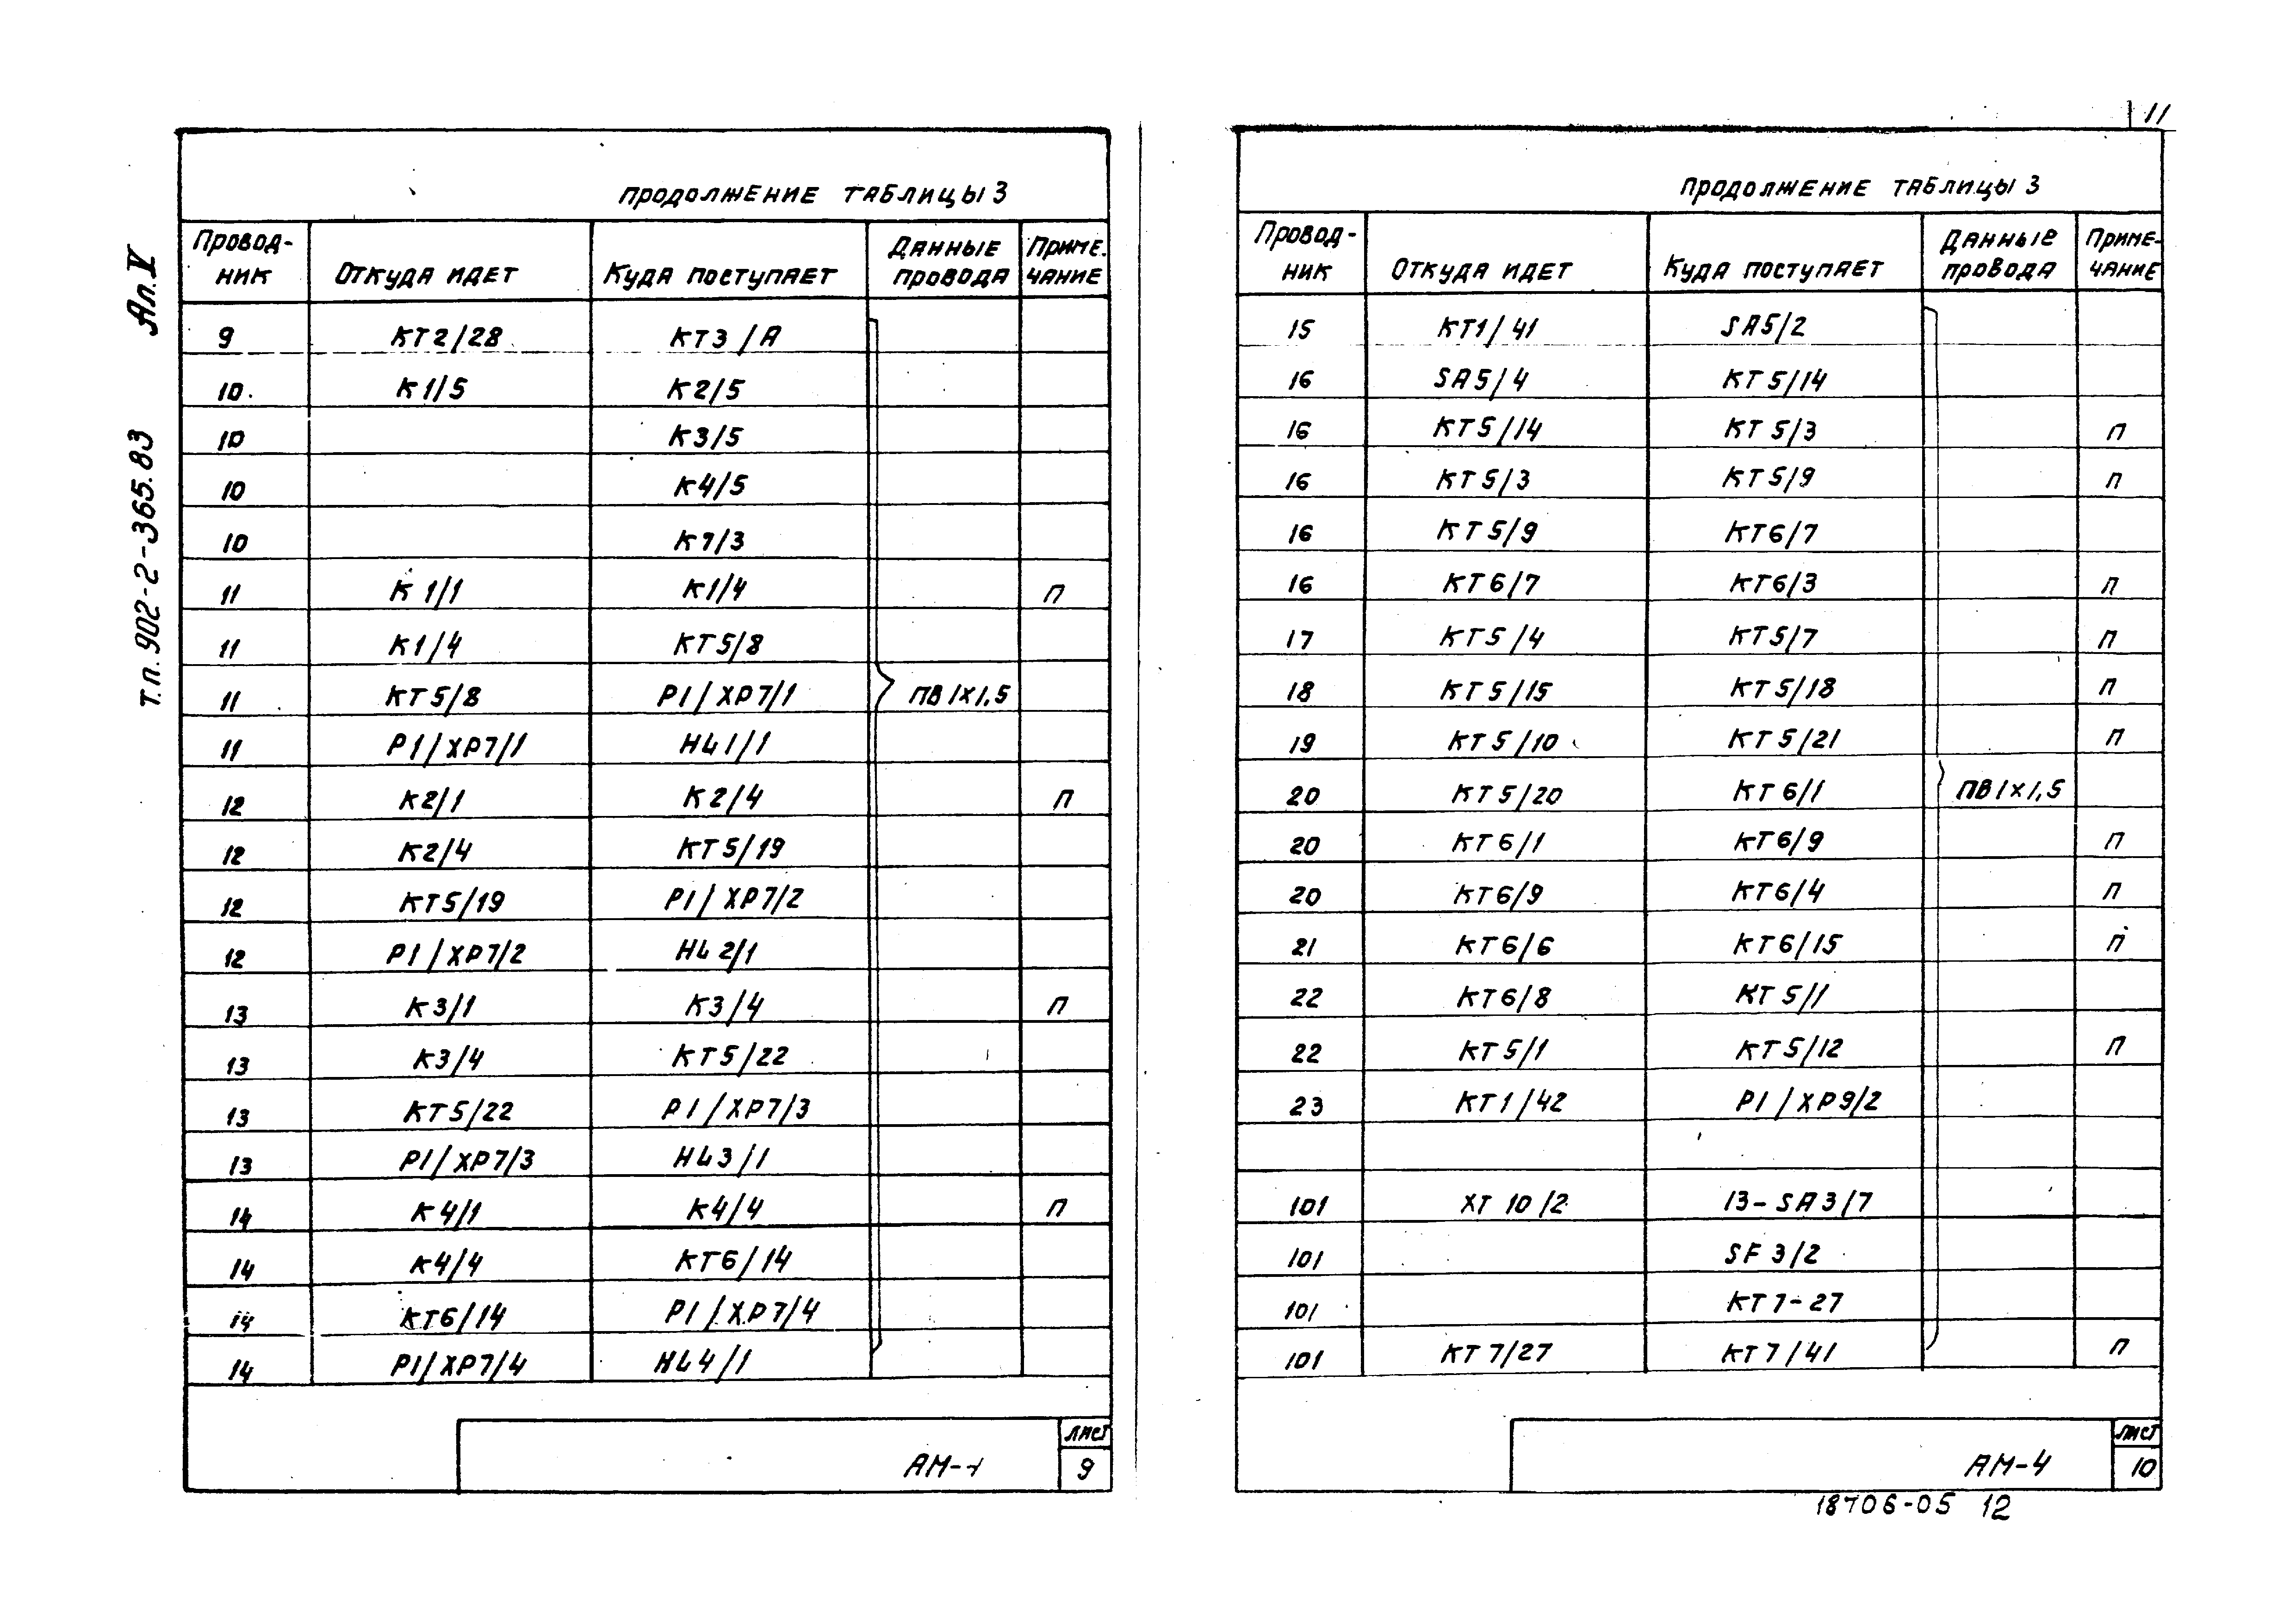 11
Ал.V
т.п. 902-2-365.83
Продолжение таблицы 3
Провод-
ник
Откуда идет
Куда поступает
Данные
провода
Приме-
чание
9 КТ2/28 КТ3/А
10 К1/5 К2/5
10 К3/5
10 К4/5
10 К7/3
11 К1/1 К1/4 П
11 К1/4 КТ5/8
11 КТ5/8 Р1/ХР7/1 ПВ1х1,5
11 Р1/ХР7/1 HL1/1
12 К2/1 К2/4 П
12 К2/4 КТ5/19
12 КТ5/19 Р1/ХР7/2
12 Р1/ХР7/2 HL2/1
13 К3/1 К3/4 П
13 К3/4 КТ5/22
13 КТ5/22 Р1/ХР7/3
13 Р1/ХР7/3 HL3/1
14 К4/1 К4/4 П
14 К4/4 КТ6/14
14 КТ6/14 Р1/ХР7/4
14 Р1/ХР7/4 HL4/1
Лист
АМ-
9
Продолжение таблицы 3
Провод-
ник
Откуда идет
Куда поступает
Данные
провода
Приме-
чание
15 КТ1/41 SA5/2
16 SA5/4 КТ5/14
16 КТ5/14 КТ5/3 П
16 КТ5/3 КТ5/9 П
16 КТ5/9 КТ6/7
16 КТ6/7 КТ6/3 П
17 КТ5/4 КТ5/7 П
18 КТ5/15 КТ5/18 П
19 КТ5/10 КТ5/21 П
20 КТ5/20 КТ6/1 ПВ1х1,5
20 КТ6/1 КТ6/9 П
20 КТ6/9 КТ6/4 П
21 КТ6/6 КТ6/15 П
22 КТ6/8 КТ5/1
22 КТ5/1 КТ5/12 П
23 КТ1/42 Р1/ХР9/2
101 ХТ10/2 13-SA3/7
101 SF3/2
101 КТ7-27
101 КТ7/27 КТ7/41 П
Лист
АМ-4
10
18706-05 12